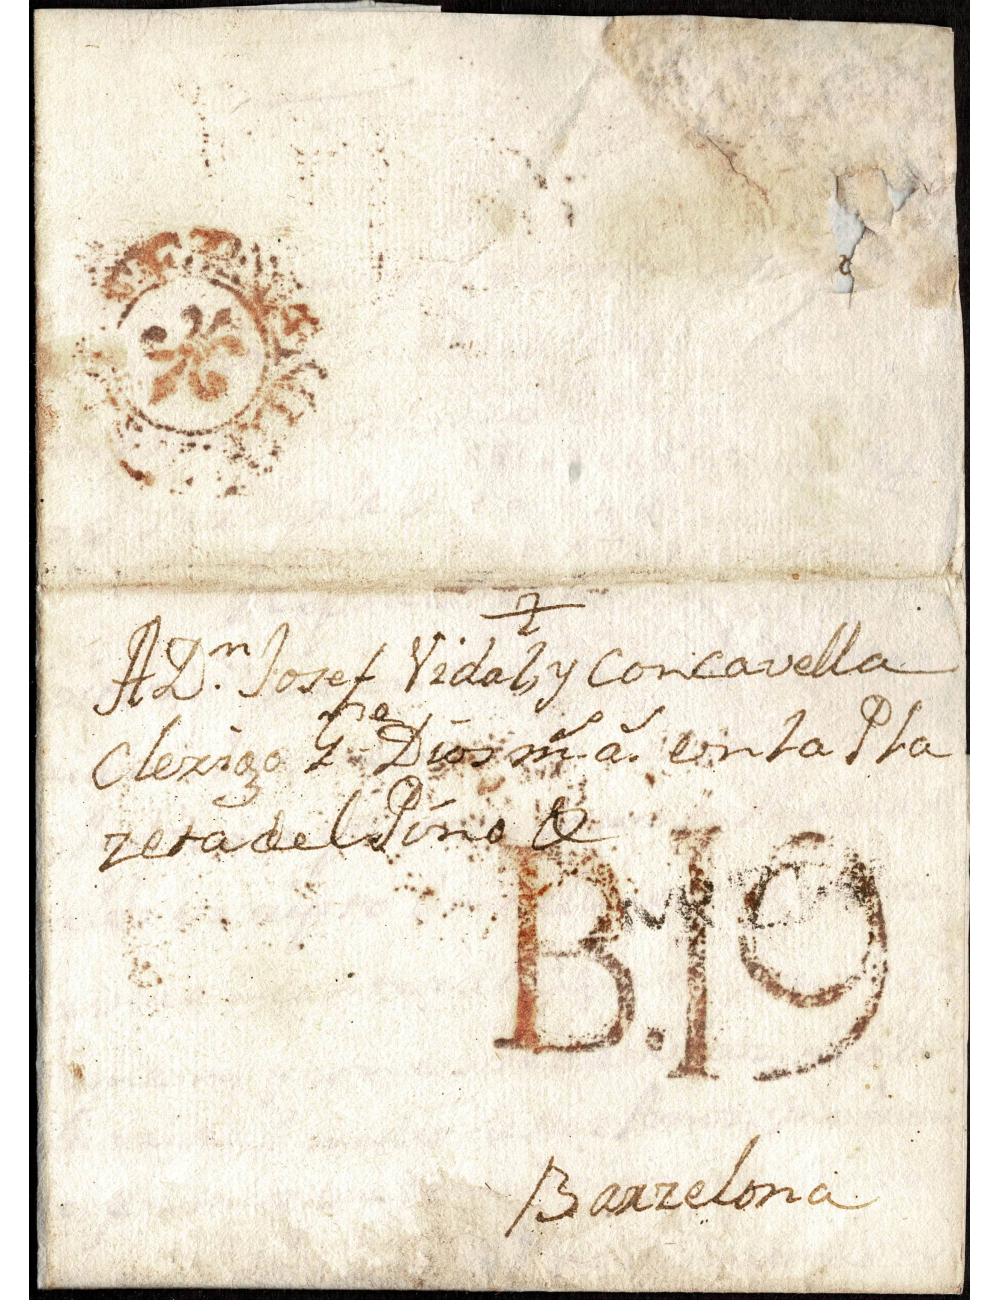 A D.n Josef Vidal, y Concavella
clerigo q.e Dios m.s a.s en la Pla
zeta del Pino &
B.19
Barzelona